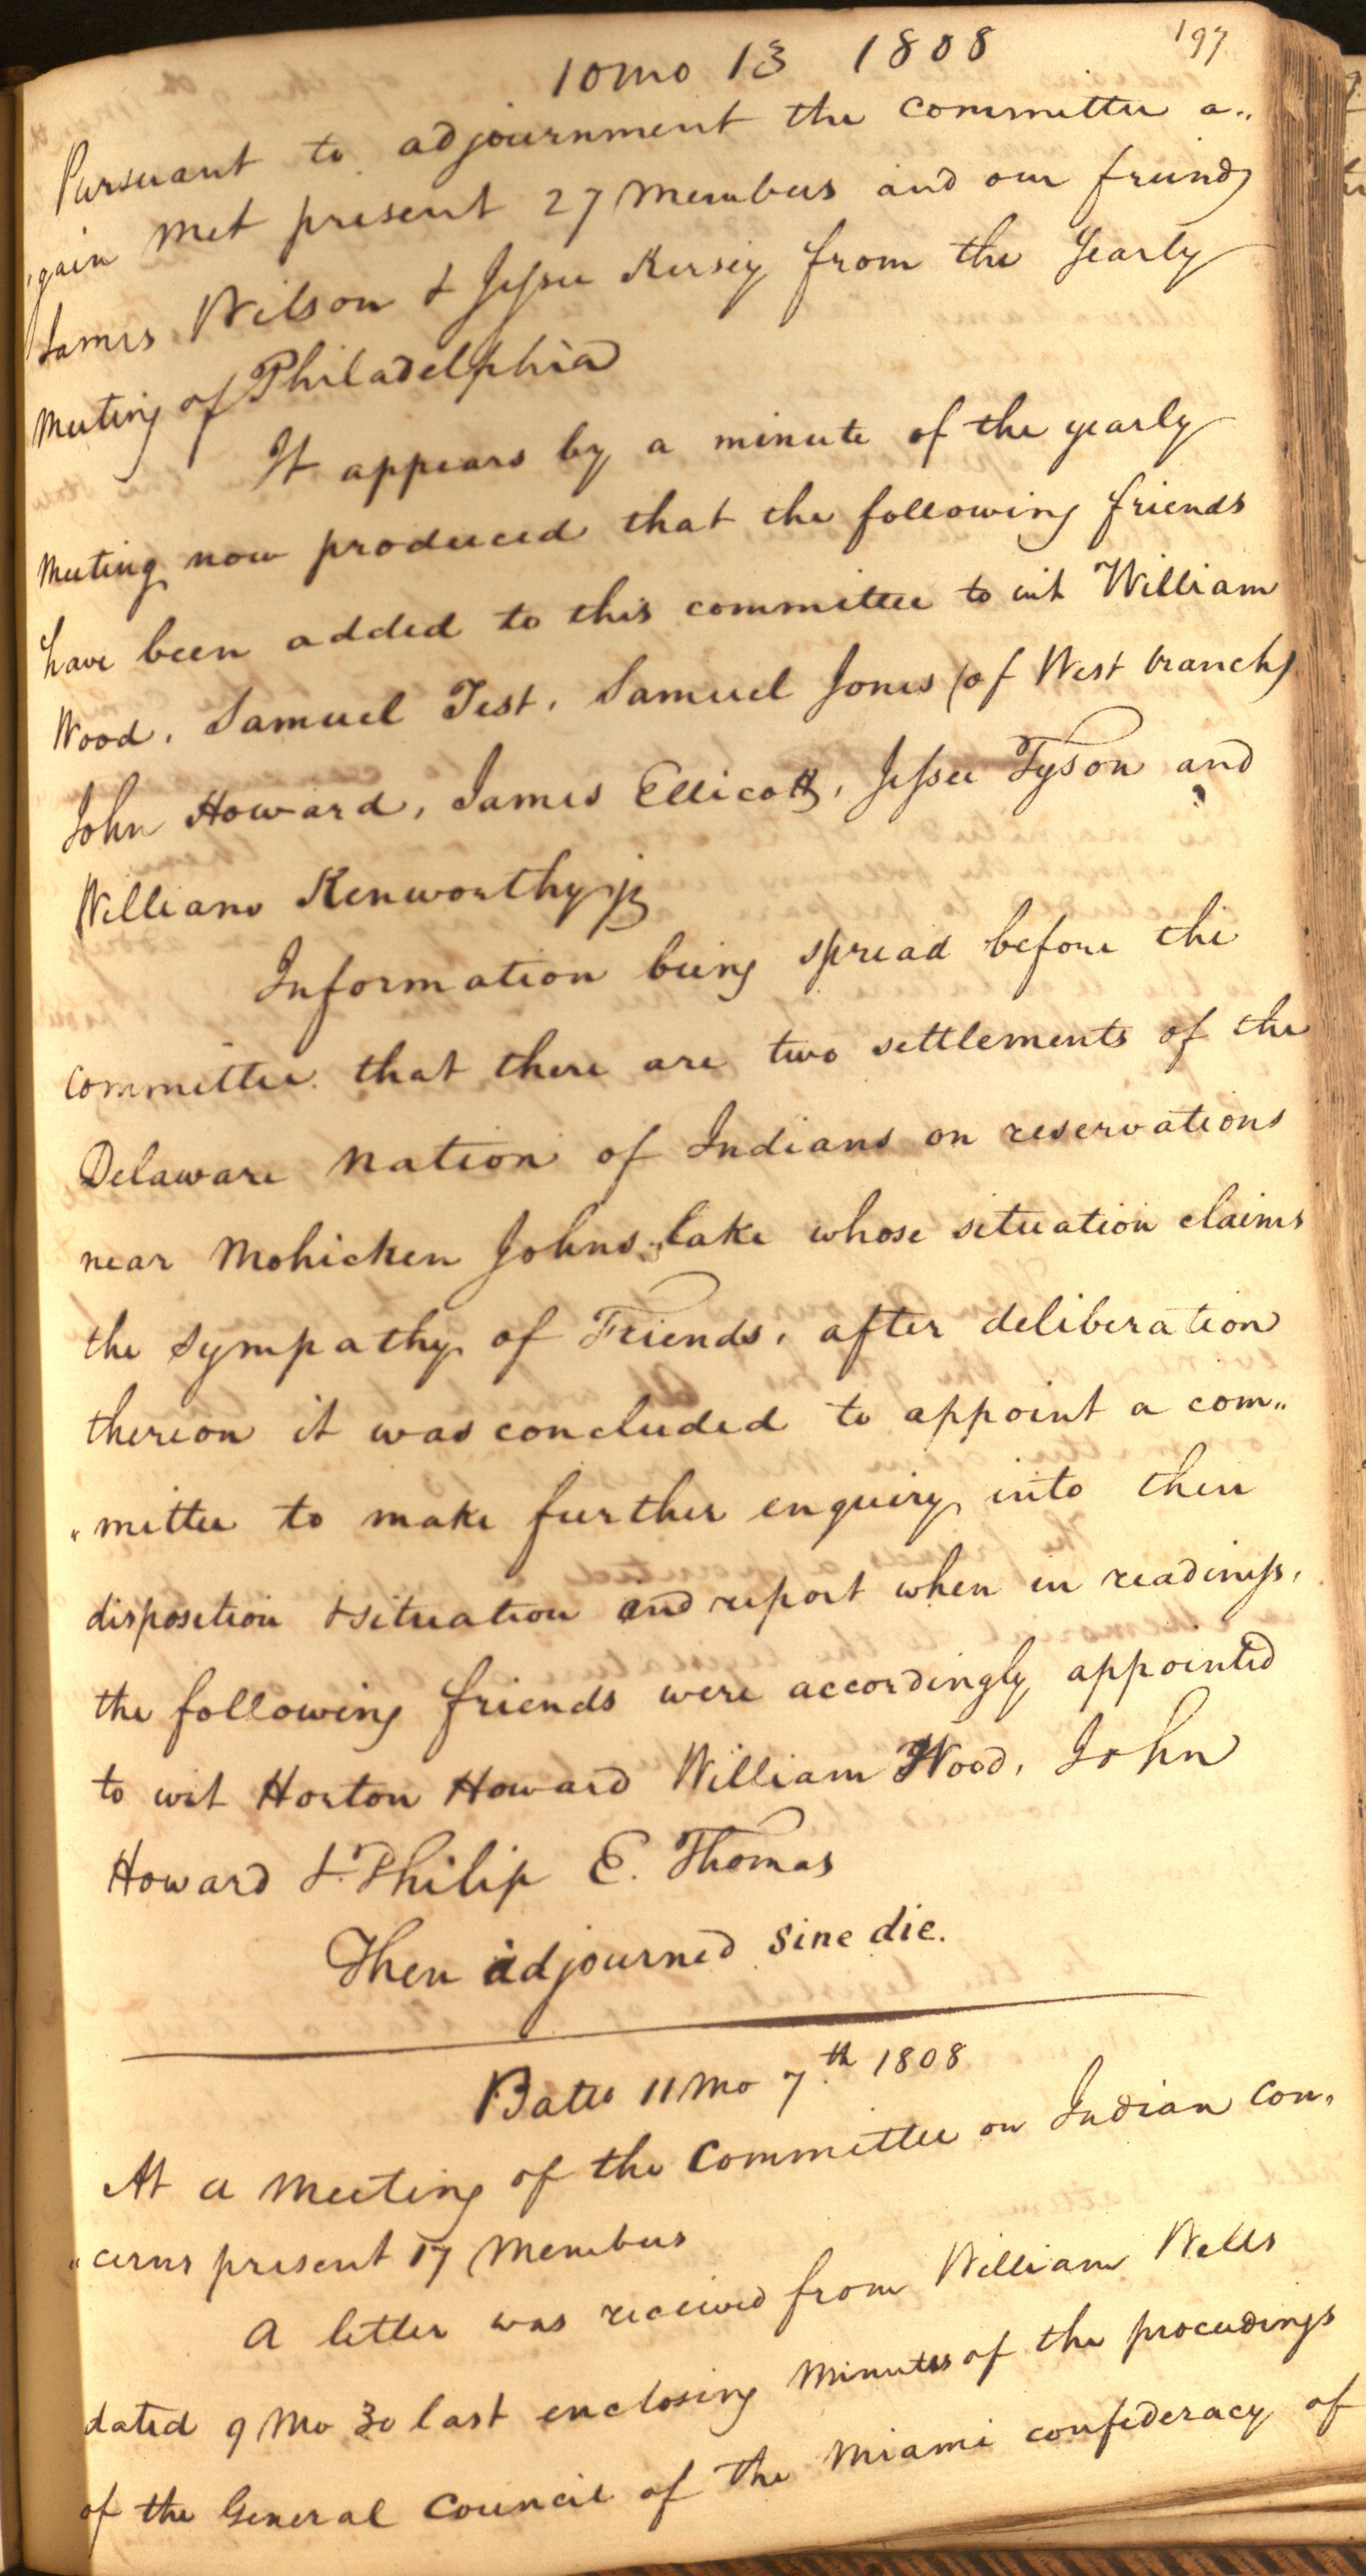 197
10mo 13 1808
Pursuant to adjournment the committee a„
„gain met present 27 Members and our friends
James Wilson & Jesse Kersey from the Yearly
Meeting of Philadelphia
It appears by a minute of the yearly
Meeting now produced that the following friends
have been added to this committee to wit William
Wood, Samuel Test, Samuel Jones (of West branch)
John Howard, James Ellicott, Jesse Tyson and
William Kenworthy jr
Information being spread before the
committee that there are two settlements of the
Delaware Nation of Indians on reservations
near Mohicken Johns lake whose situation claims
the sympathy of Friends, after deliberation
thereon it was concluded to appoint a com„
„mittee to make further enquiry into their
disposition & situation and report when in readiness,
the following friends were accordingly appointed
to wit Horton Howard William Wood, John
Howard & Philip E. Thomas
Then adjourned sine die.
Balto 11 Mo 7th 1808
At a Meeting of the Committee on Indian Con„
„cerns present 17 Members
A letter was received from William Wells
dated 9 Mo 30 last enclosing Minutes of the proceedings
of the General Council of the Miami confederacy of